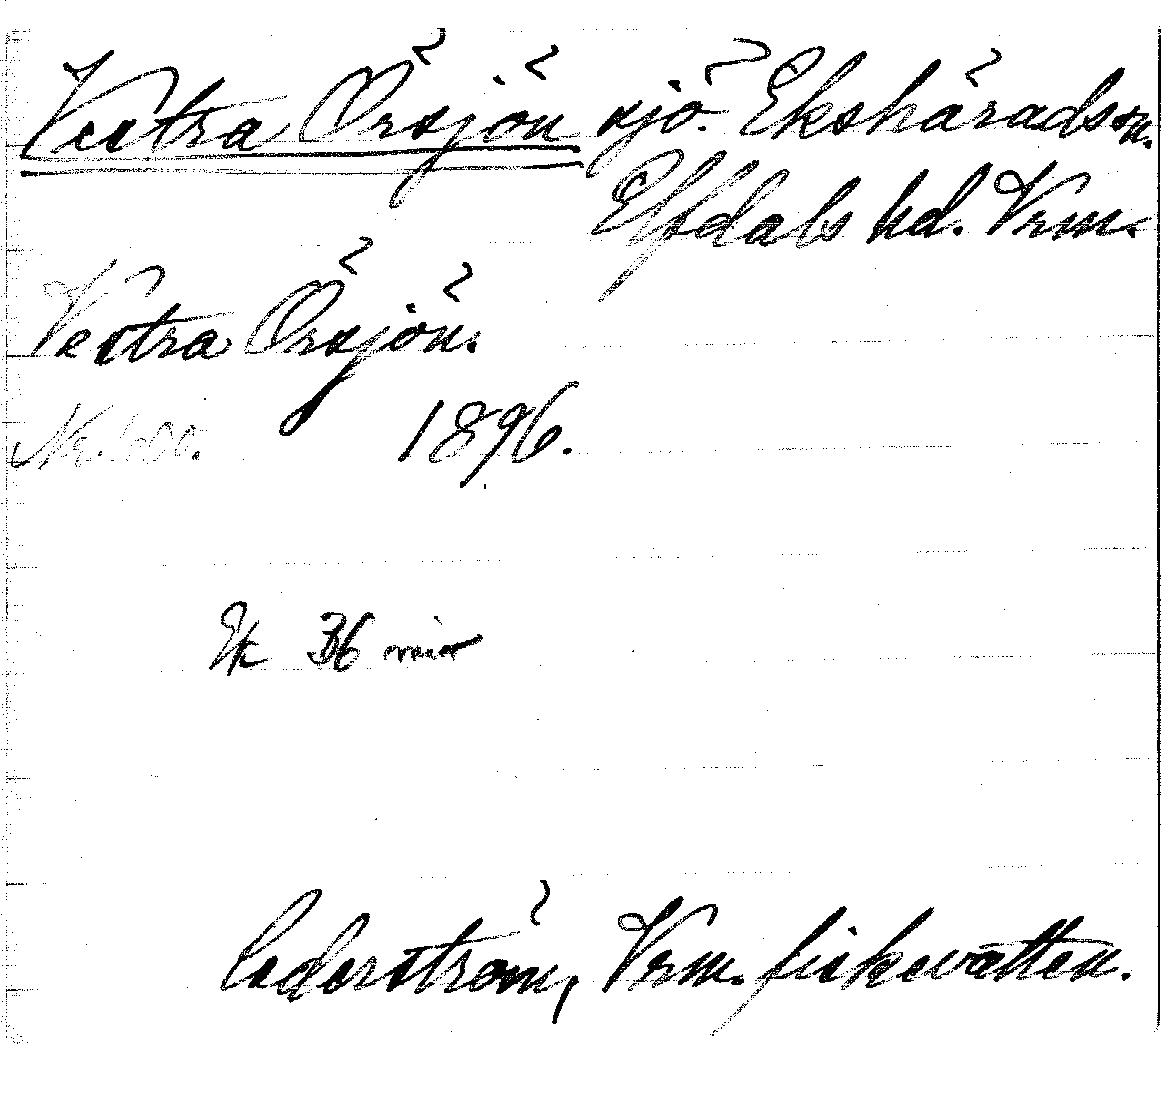 Vestra Örsjön sjö. Ekshäradsm.
Elfdals hd. Vrm.
Vestra Örsjön.
Nr. 600. 1896.
Ek 36
Cederström, Vrm. fiskevatten.